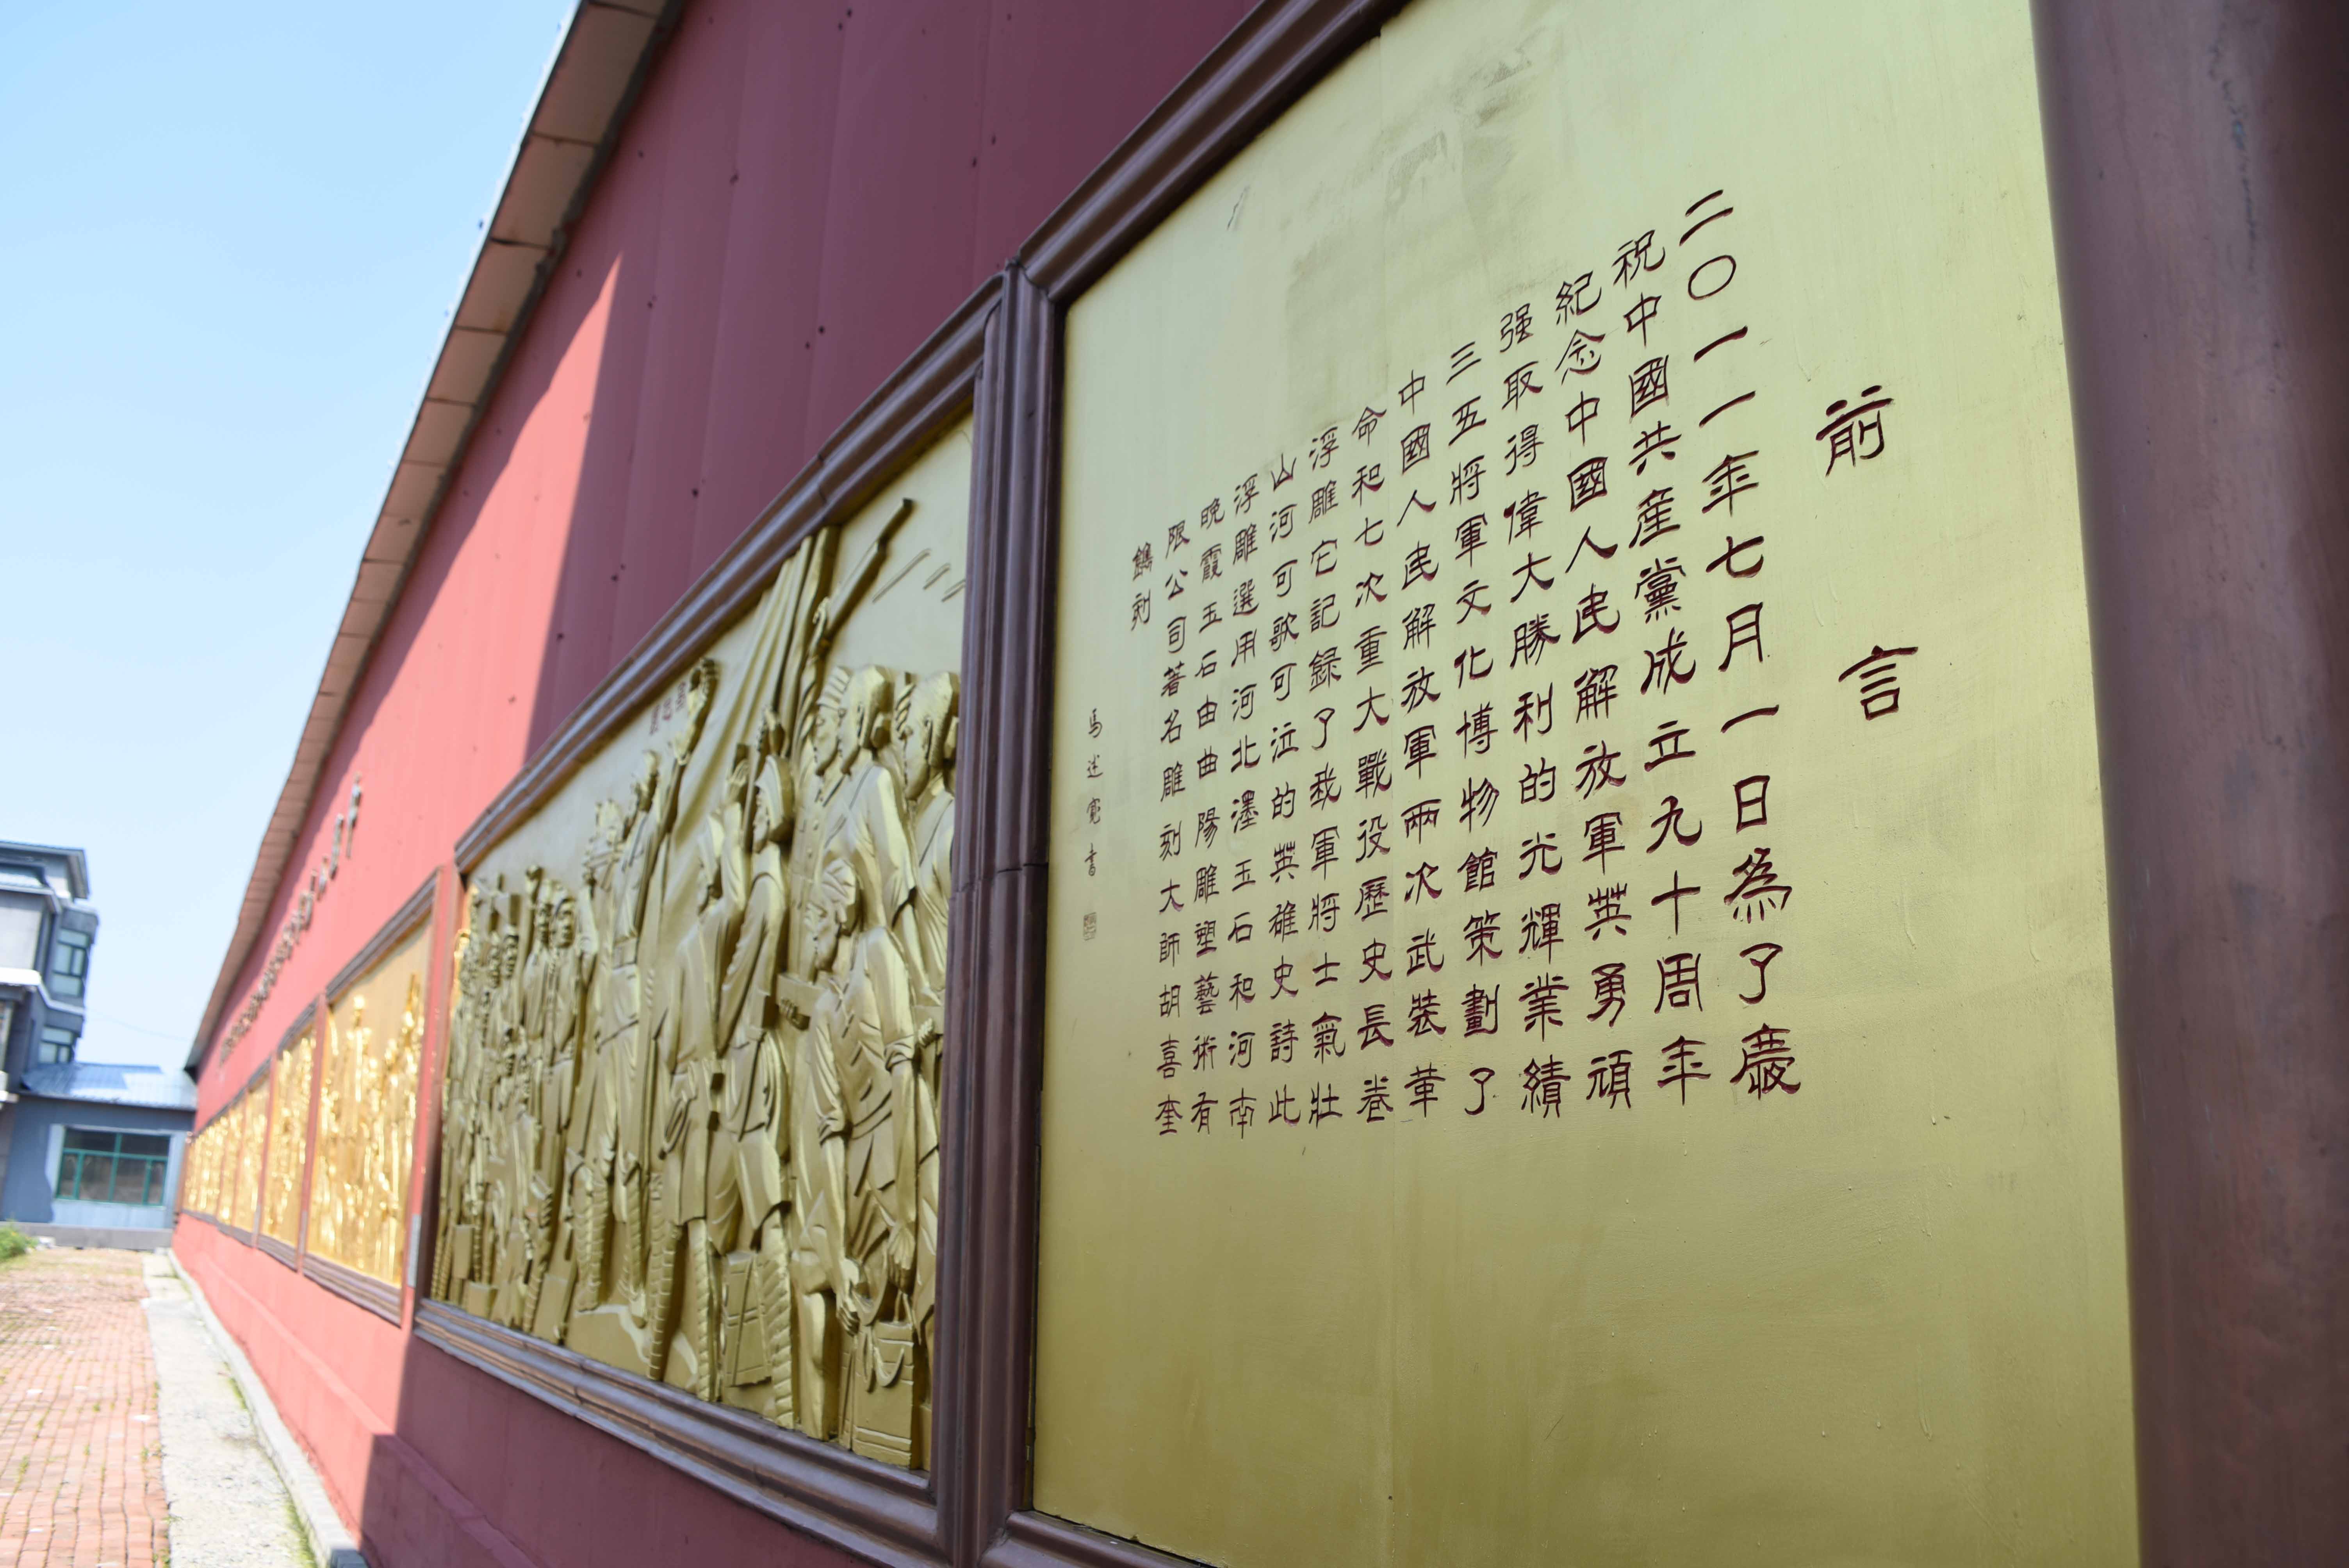 前言
二〇一一年七月一日為了慶
祝中國共産黨成立九十周年
紀念中國人民解放軍英勇頑
强取得偉大勝利的光輝業績
三五將軍文化博物館策劃了
中國人民解放軍兩次武裝革
命和七次重大戰役歷史長卷
浮雕它記録了我軍將士氣壯
山河可歌可泣的英雄史詩此
浮雕選用河北灅玉石和河南
晚霞玉石由曲陽雕塑藝術有
限公司著名雕刻大師胡喜奎
鐫刻
馬述寬書